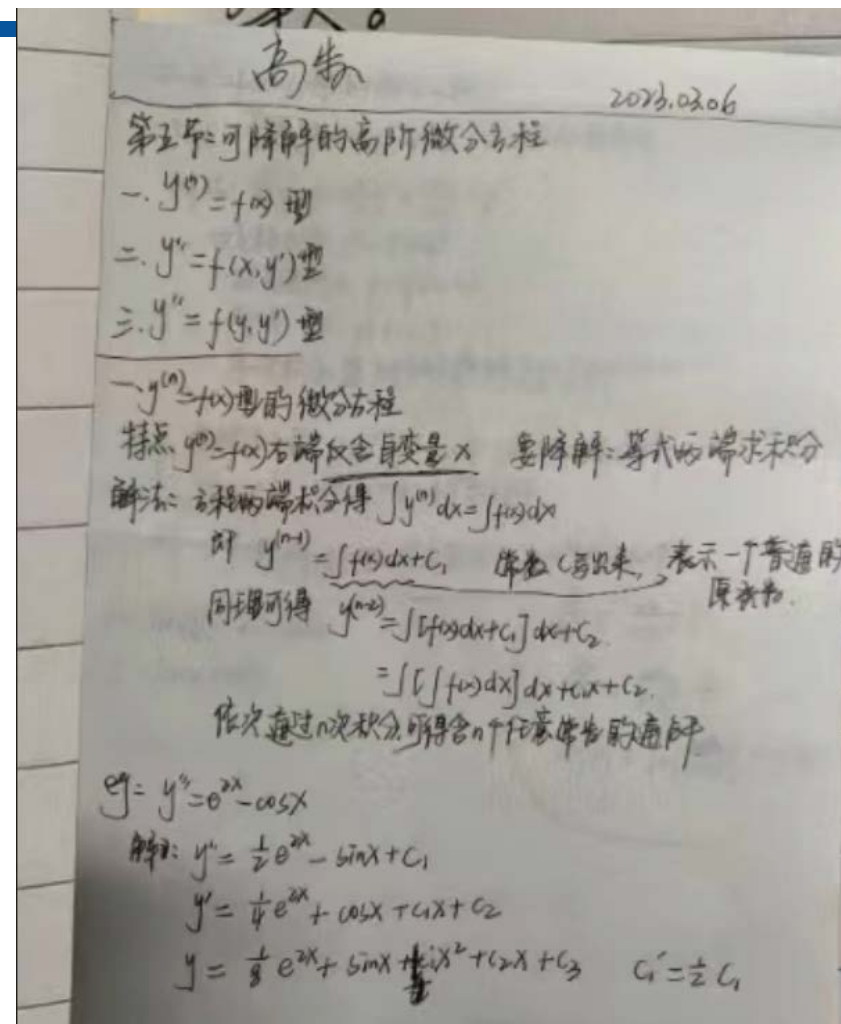 高数
2023.03.06
第五节:可降解的高阶微分方程
一. y⁽ⁿ⁾=f(x)型
二. y''=f(x,y')型
三. y''=f(y,y')型
一、y⁽ⁿ⁾=f(x)型的微分方程
特点 y⁽ⁿ⁾=f(x)右端仅含自变量x 要降解:等式两端求积分
解法: 方程两端积分得 ∫y⁽ⁿ⁾dx=∫f(x)dx
即 y⁽ⁿ⁻¹⁾=∫f(x)dx+C₁ 常数C写出来, 表示一个普通的
原函数.
同理可得 y⁽ⁿ⁻²⁾=∫[∫f(x)dx+C₁]dx+C₂.
=∫[∫f(x)dx]dx+C₁x+C₂.
依次通过n次积分,可得含n个任意常数的通解
eg: y'''=e²ˣ-cosx
解: y''=½e²ˣ-sinx+C₁
y'=¼e²ˣ+cosx+C₁x+C₂
y=⅛e²ˣ+sinx+C₁'x²+C₂x+C₃ C₁'=½C₁